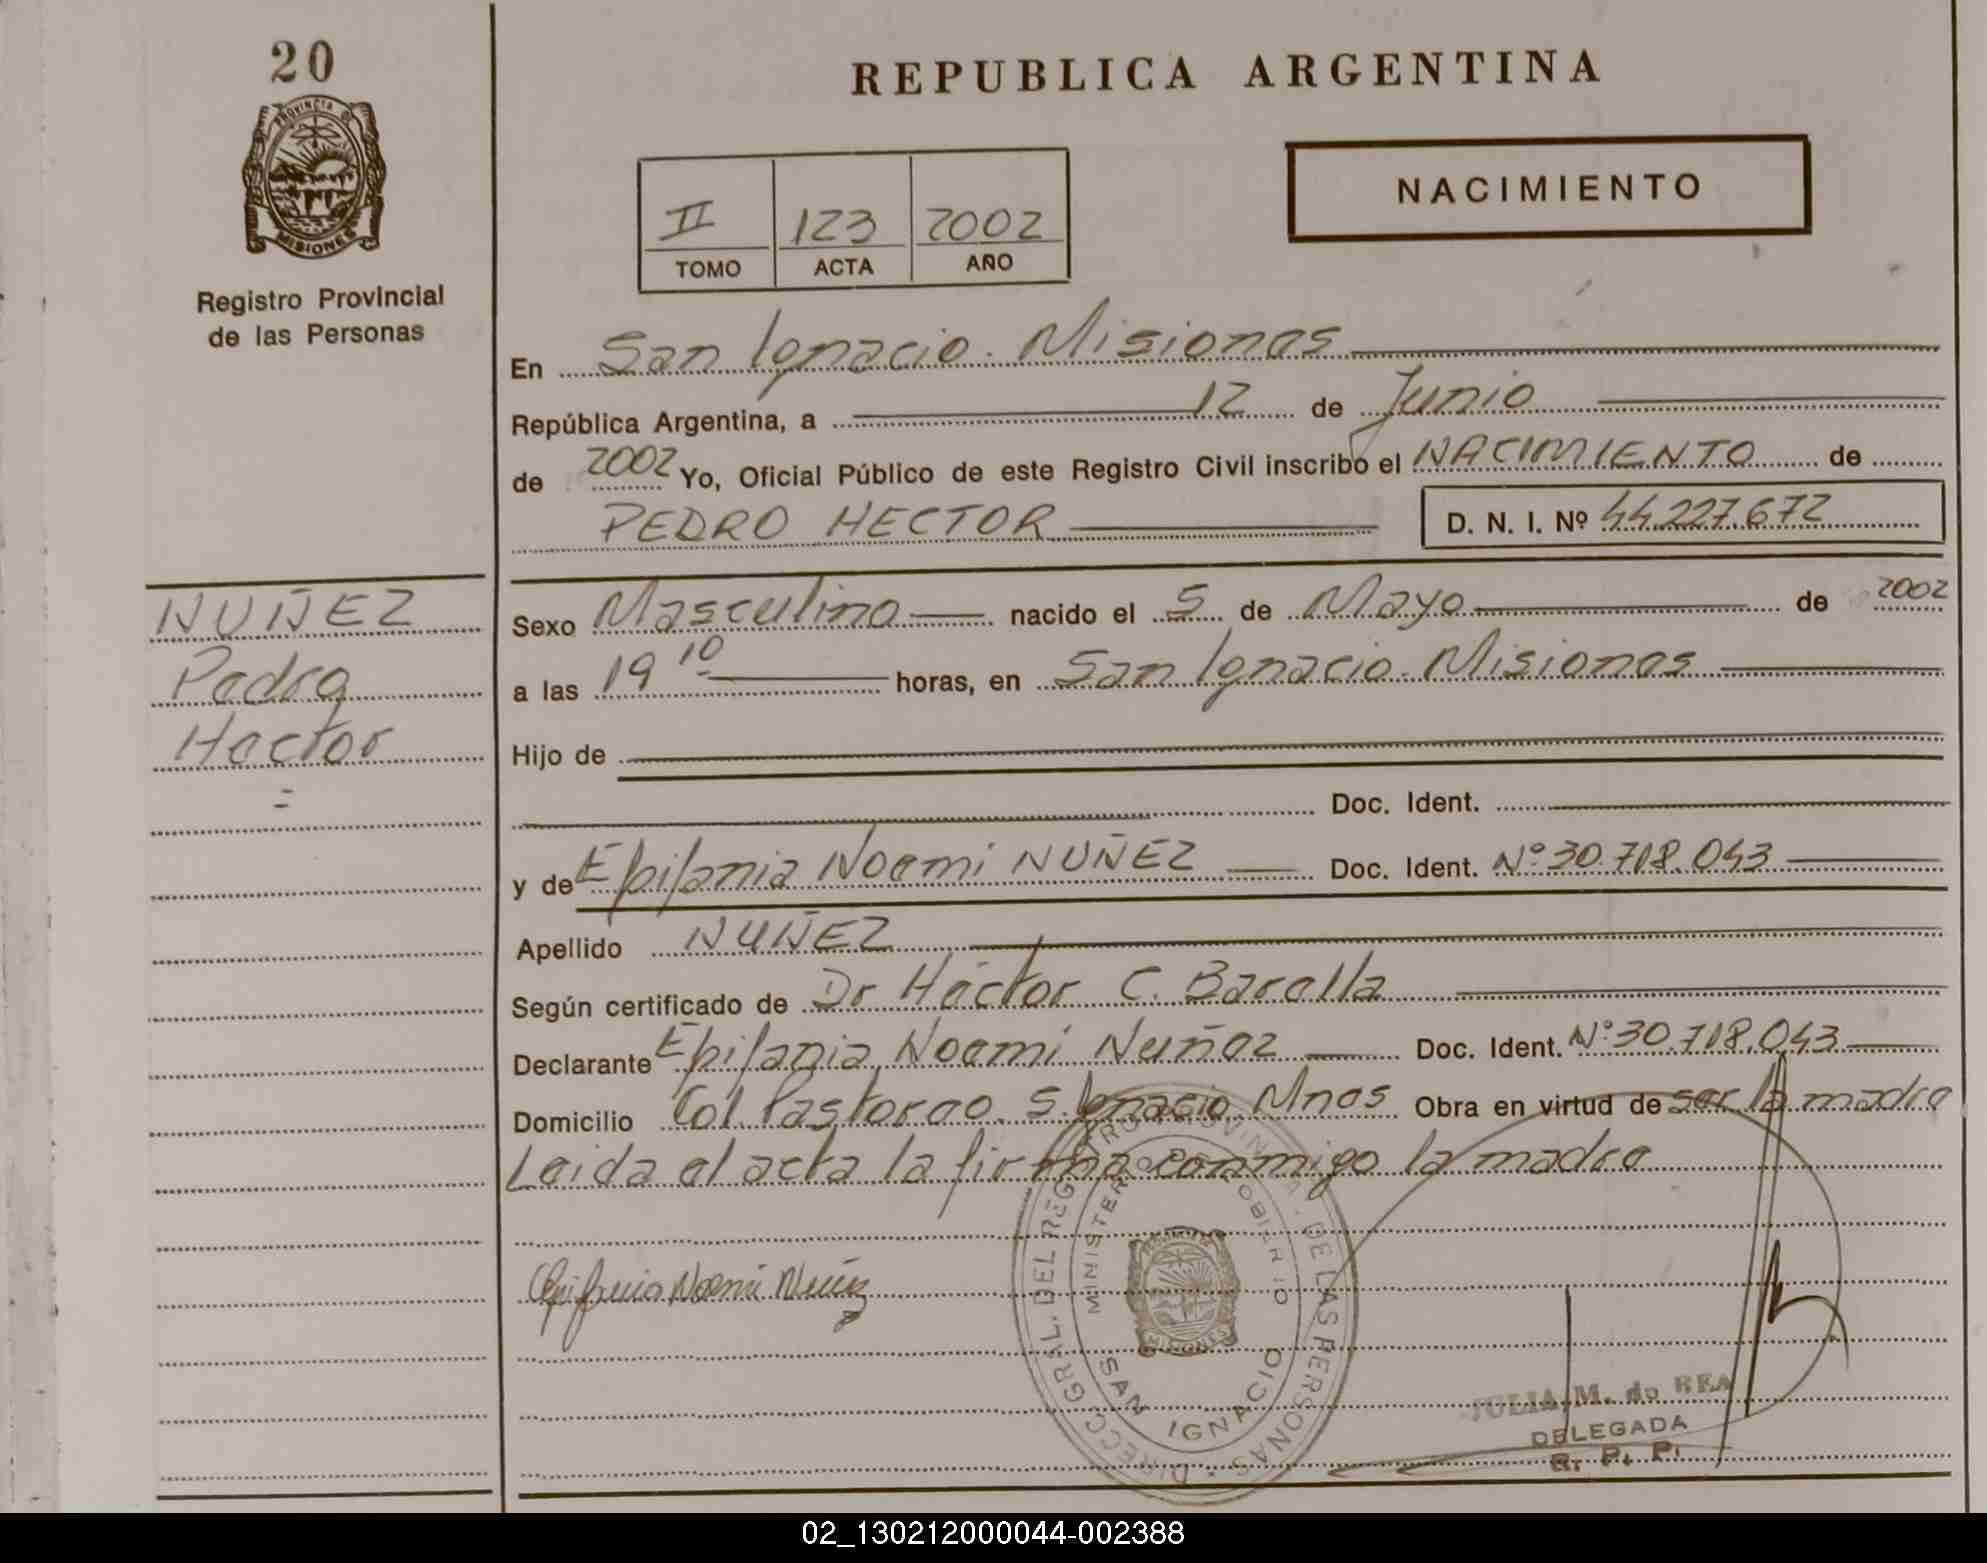 20
PROVINCIA D
MISIONES
Registro Provincial
de las Personas
REPUBLICA ARGENTINA
NACIMIENTO
II 123 2002
TOMO ACTA AÑO
En San Ignacio. Misiones
República Argentina, a 12 de Junio
de 2002 Yo, Oficial Público de este Registro Civil inscribo el NACIMIENTO de
PEDRO HECTOR D. N. I. Nº 44.227.672
NUÑEZ
Pedro
Hector
=
Sexo Masculino nacido el 5 de Mayo de 2002
a las 19 10 horas, en San Ignacio. Misiones
Hijo de
Doc. Ident.
y de Epifania Noemi NUÑEZ Doc. Ident. Nº 30.718.043
Apellido NUÑEZ
Según certificado de Dr Héctor C. Baralla
Declarante Epifania Noemi Nuñez Doc. Ident. Nº 30.718.043
Domicilio Col. Pastoreo. S. Ignacio. Mnes Obra en virtud de ser la madre
Leida el acta la firma conmigo la madre
Epifania Noemi Nuñez
DIRECC. GRAL. DEL REG. PROVIN. DE LAS PERSONAS
MINISTERIO DE GOBIERNO
MISIONES
SAN IGNACIO
JULIA M. de REA
DELEGADA
R. P. P.
02_130212000044-002388